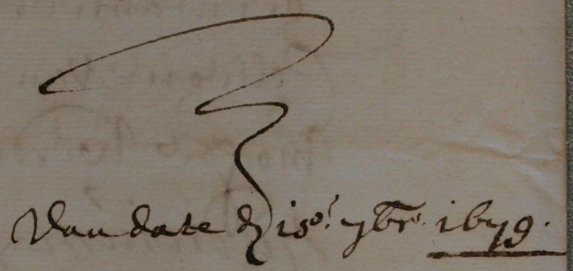 Van date dẽ 15ᵉⁿ 7bris 1679.